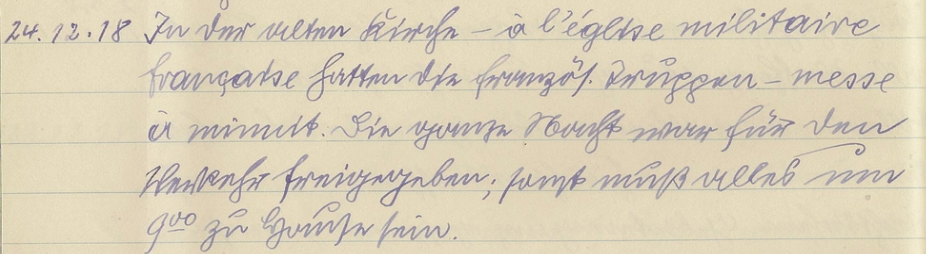 24.12.18 In der alten Kirche – à l'église militaire
française hatten die französ. Truppen – messe
à minuit. Die ganze Nacht war für den
Verkehr freigegeben; sonst muß alles um
9⁰⁰ zu Hause sein.